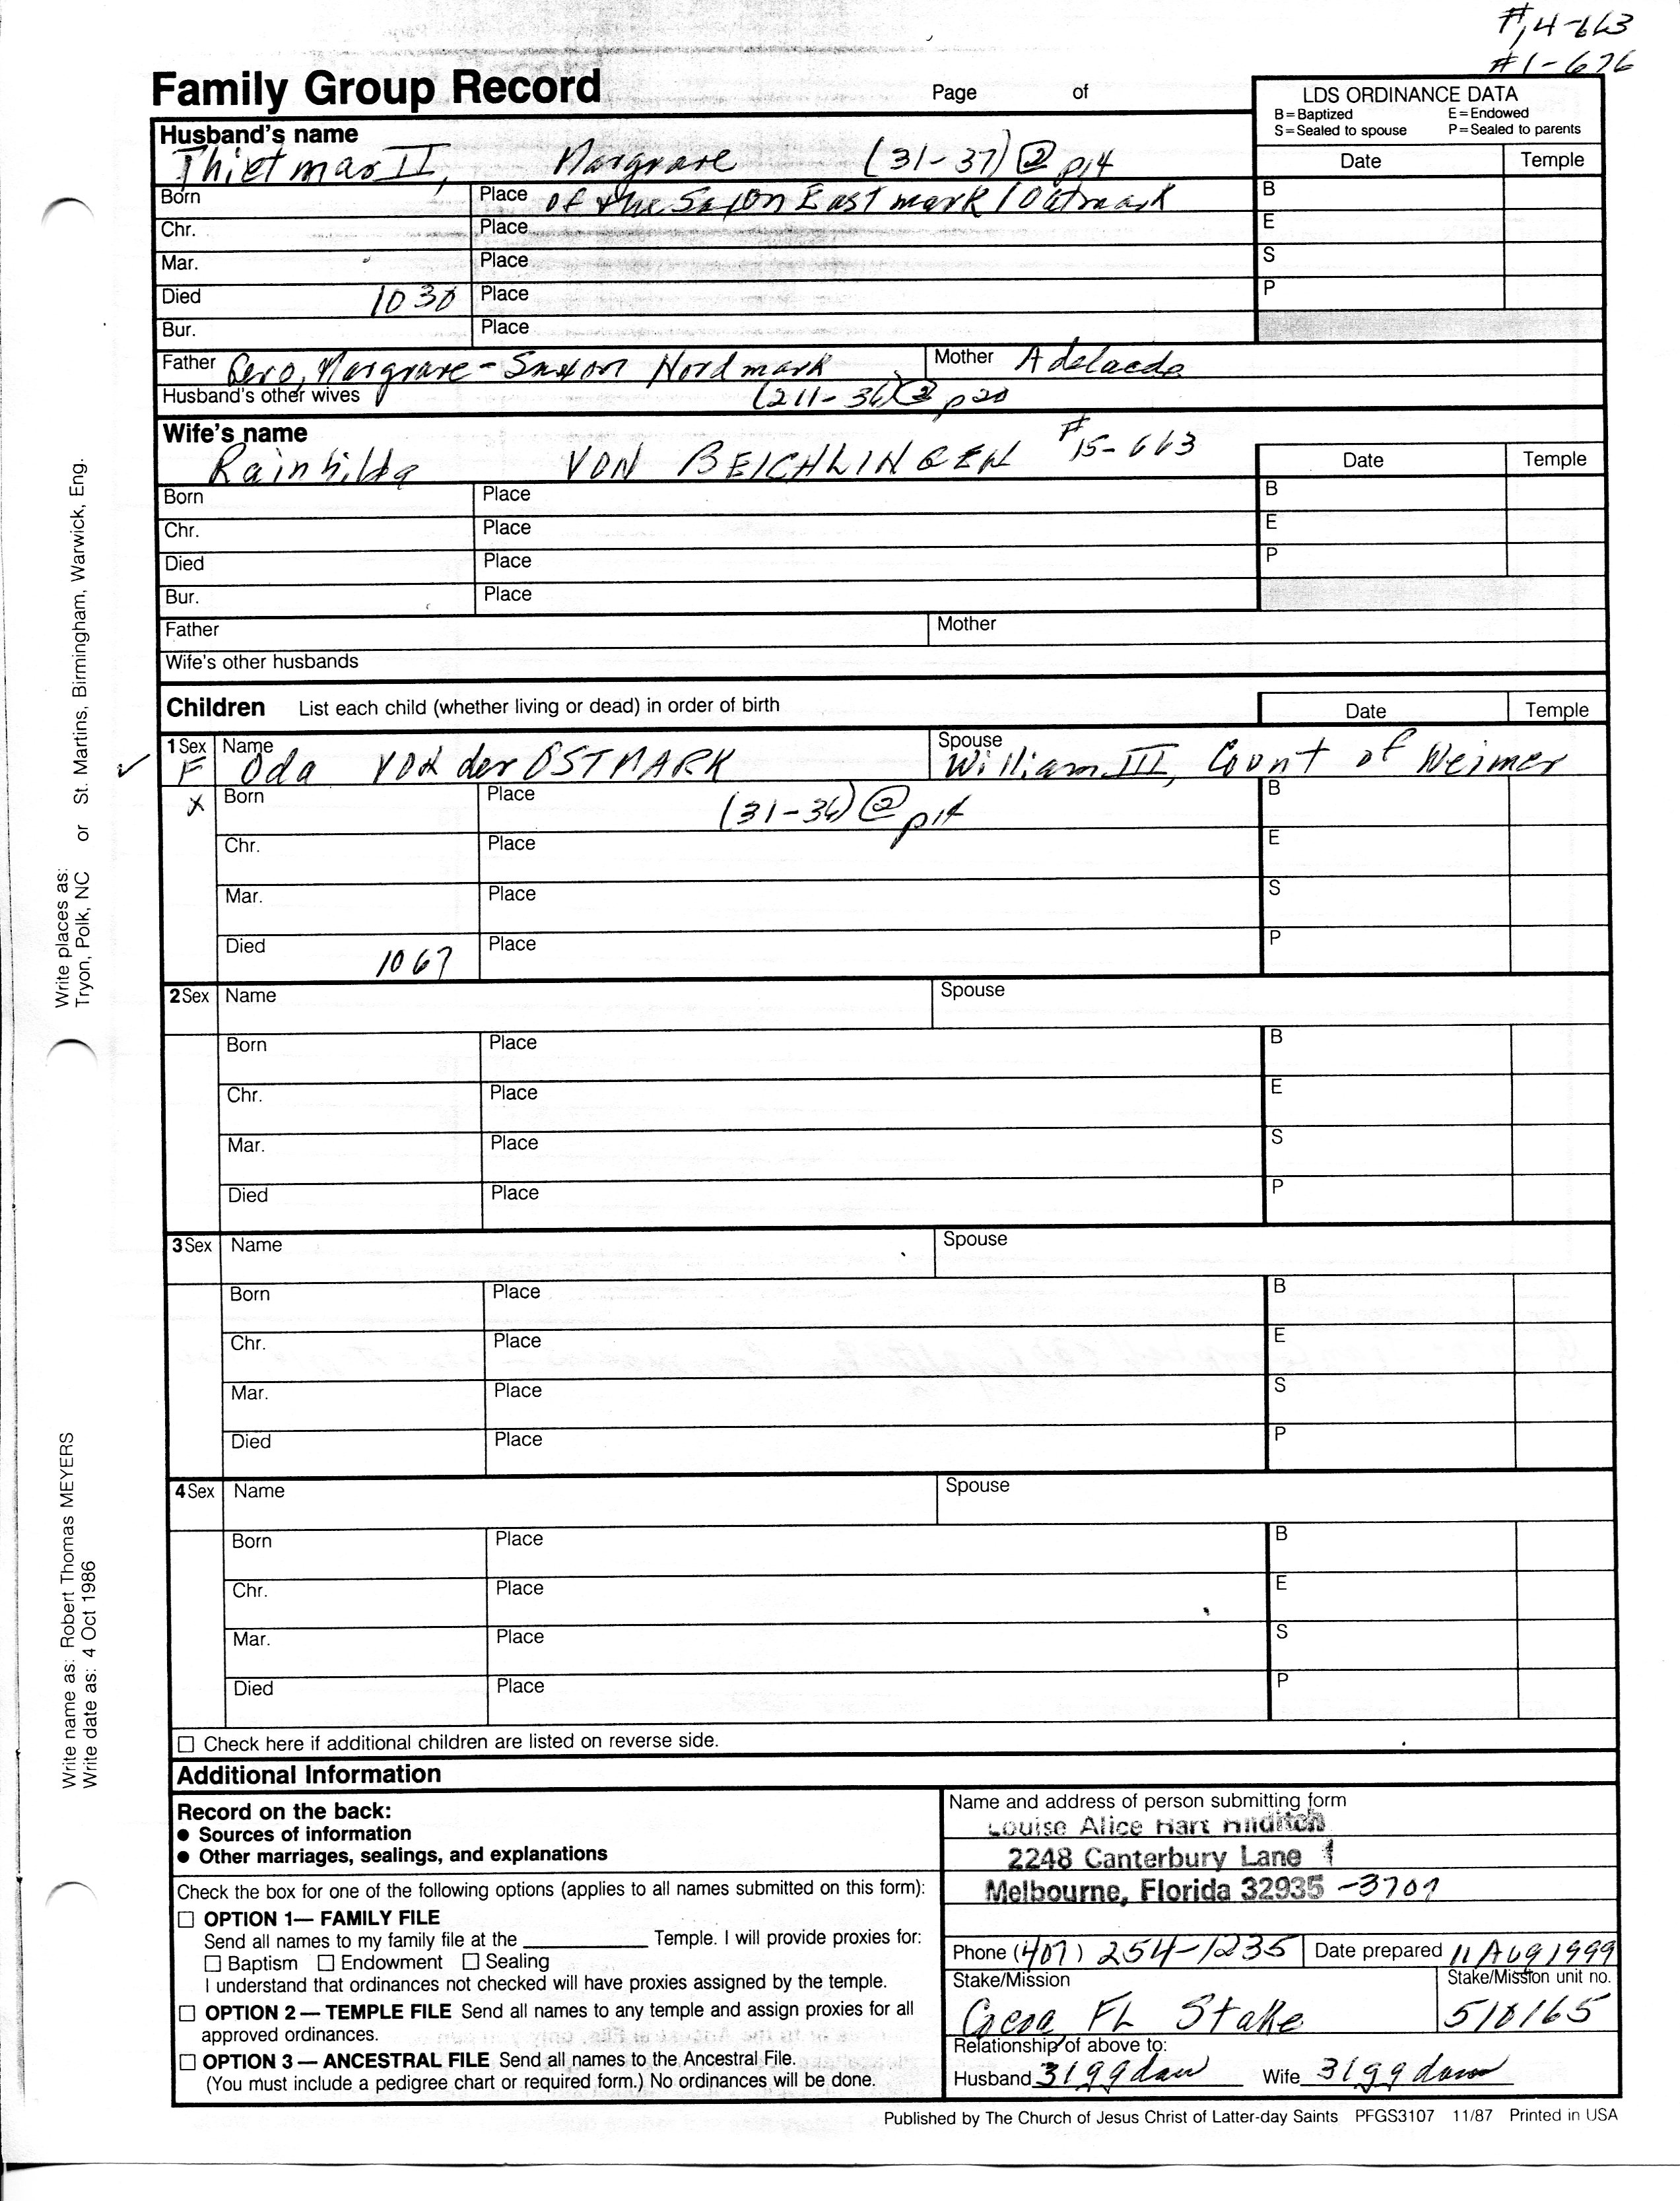 #14-663
#1-676
Family Group Record Page of
LDS ORDINANCE DATA
B=Baptized E=Endowed
S=Sealed to spouse P=Sealed to parents
Husband's name
Thietmar II, Margrave (31-37) @ p14
Date Temple
Born Place of the Saxon Eastmark / Ostmark B
Chr. Place E
Mar. Place S
Died 1030 Place P
Bur. Place
Father Gero, Margrave - Saxon Nordmark Mother Adelaede
Husband's other wives (211-36) @ p20
Wife's name
Rainhilda VON BEICHLINGEN #15-663
Date Temple
Born Place B
Chr. Place E
Died Place P
Bur. Place
Father Mother
Wife's other husbands
Children List each child (whether living or dead) in order of birth Date Temple
1 Sex Name Spouse
F Oda VON der OSTMARK William III, Count of Weimer
X Born Place (31-36) @ p14 B
Chr. Place E
Mar. Place S
Died 1067 Place P
2 Sex Name Spouse
Born Place B
Chr. Place E
Mar. Place S
Died Place P
3 Sex Name Spouse
Born Place B
Chr. Place E
Mar. Place S
Died Place P
4 Sex Name Spouse
Born Place B
Chr. Place E
Mar. Place S
Died Place P
Check here if additional children are listed on reverse side.
Additional Information
Record on the back:
● Sources of information
● Other marriages, sealings, and explanations
Check the box for one of the following options (applies to all names submitted on this form):
OPTION 1— FAMILY FILE
Send all names to my family file at the ____________ Temple. I will provide proxies for:
Baptism Endowment Sealing
I understand that ordinances not checked will have proxies assigned by the temple.
OPTION 2 — TEMPLE FILE Send all names to any temple and assign proxies for all
approved ordinances.
OPTION 3 — ANCESTRAL FILE Send all names to the Ancestral File.
(You must include a pedigree chart or required form.) No ordinances will be done.
Name and address of person submitting form
Louise Alice Hart Hilditch
2248 Canterbury Lane
Melbourne, Florida 32935 -3707
Phone (407) 254-1235 Date prepared 11 Aug 1999
Stake/Mission Stake/Mission unit no.
Cocoa FL Stake 510165
Relationship of above to:
Husband 31ggdau Wife 31ggdau
Published by The Church of Jesus Christ of Latter-day Saints PFGS3107 11/87 Printed in USA
Write places as:
Tryon, Polk, NC or St. Martins, Birmingham, Warwick, Eng.
Write name as: Robert Thomas MEYERS
Write date as: 4 Oct 1986